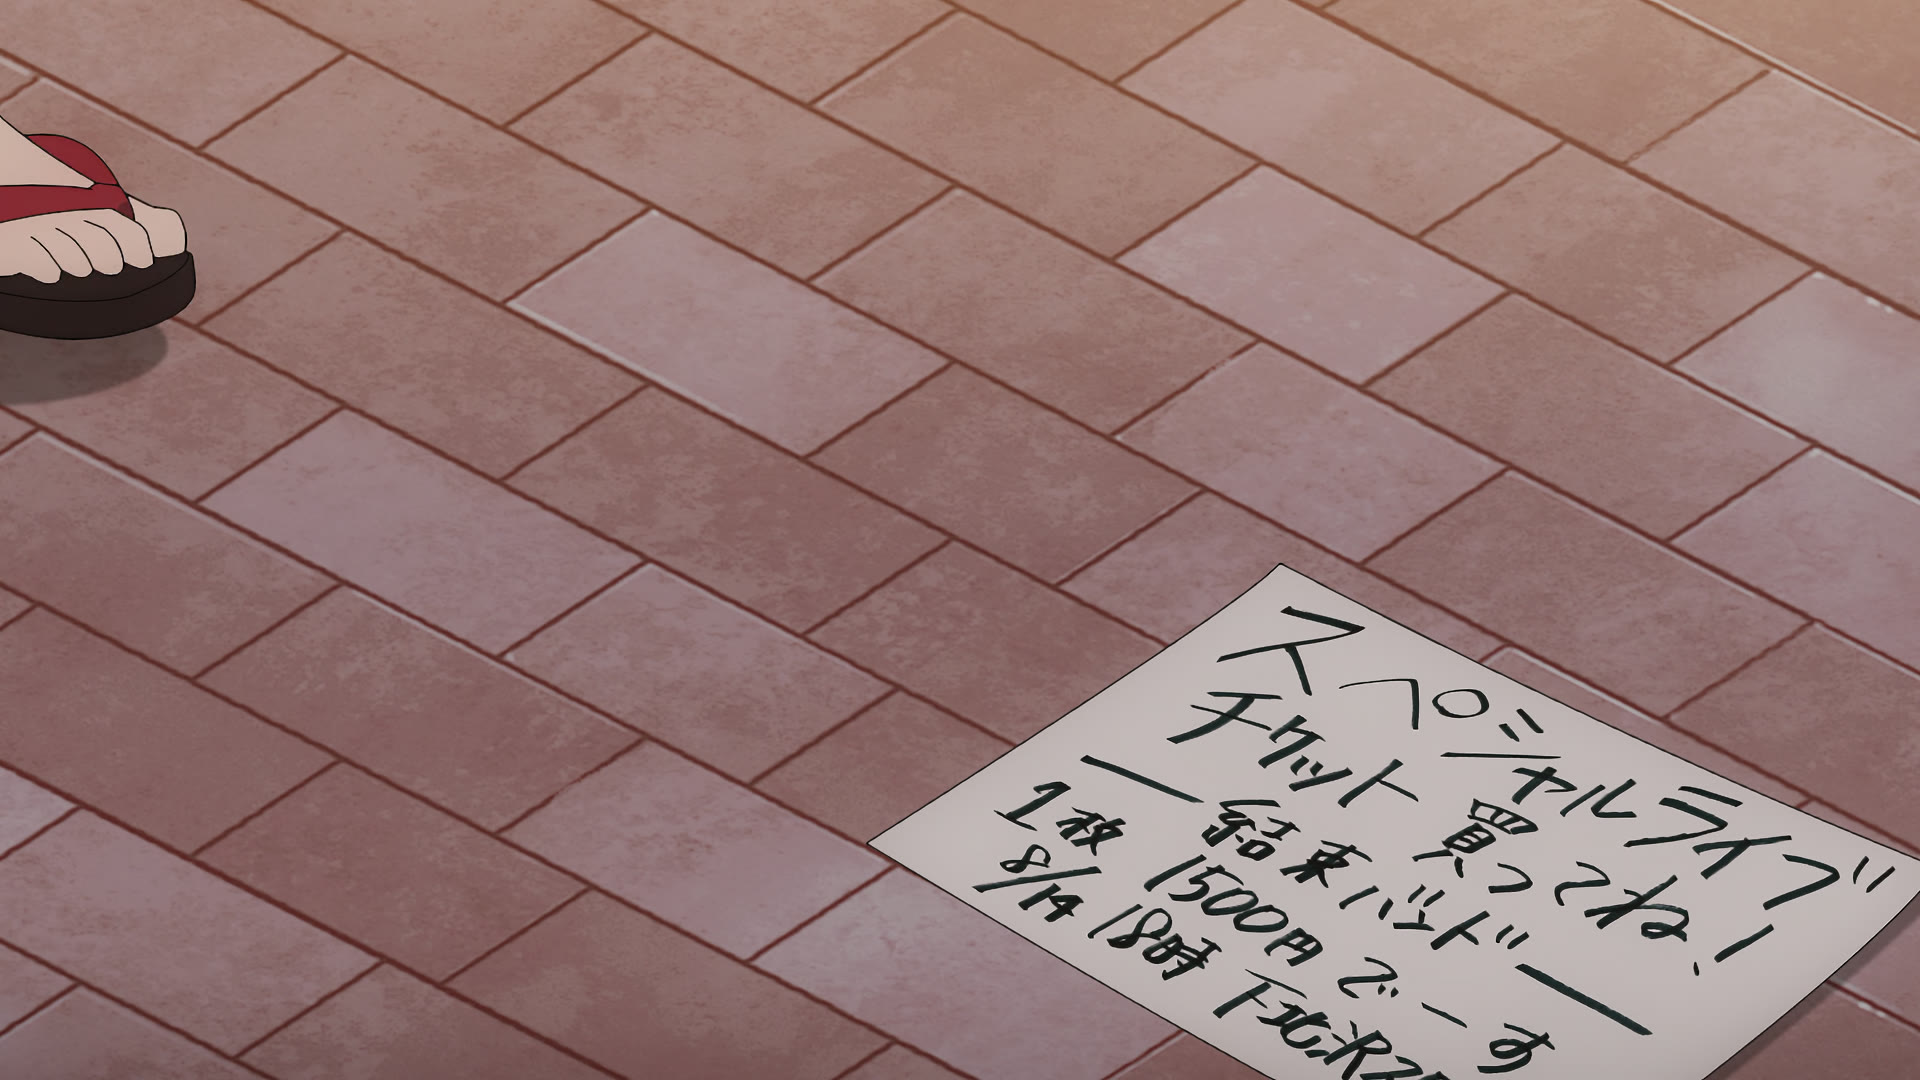 スペシャルライブ
チケット 買ってね!
― 結束バンド ―
1枚 1500円 でーす
8/14 18時 下北沢